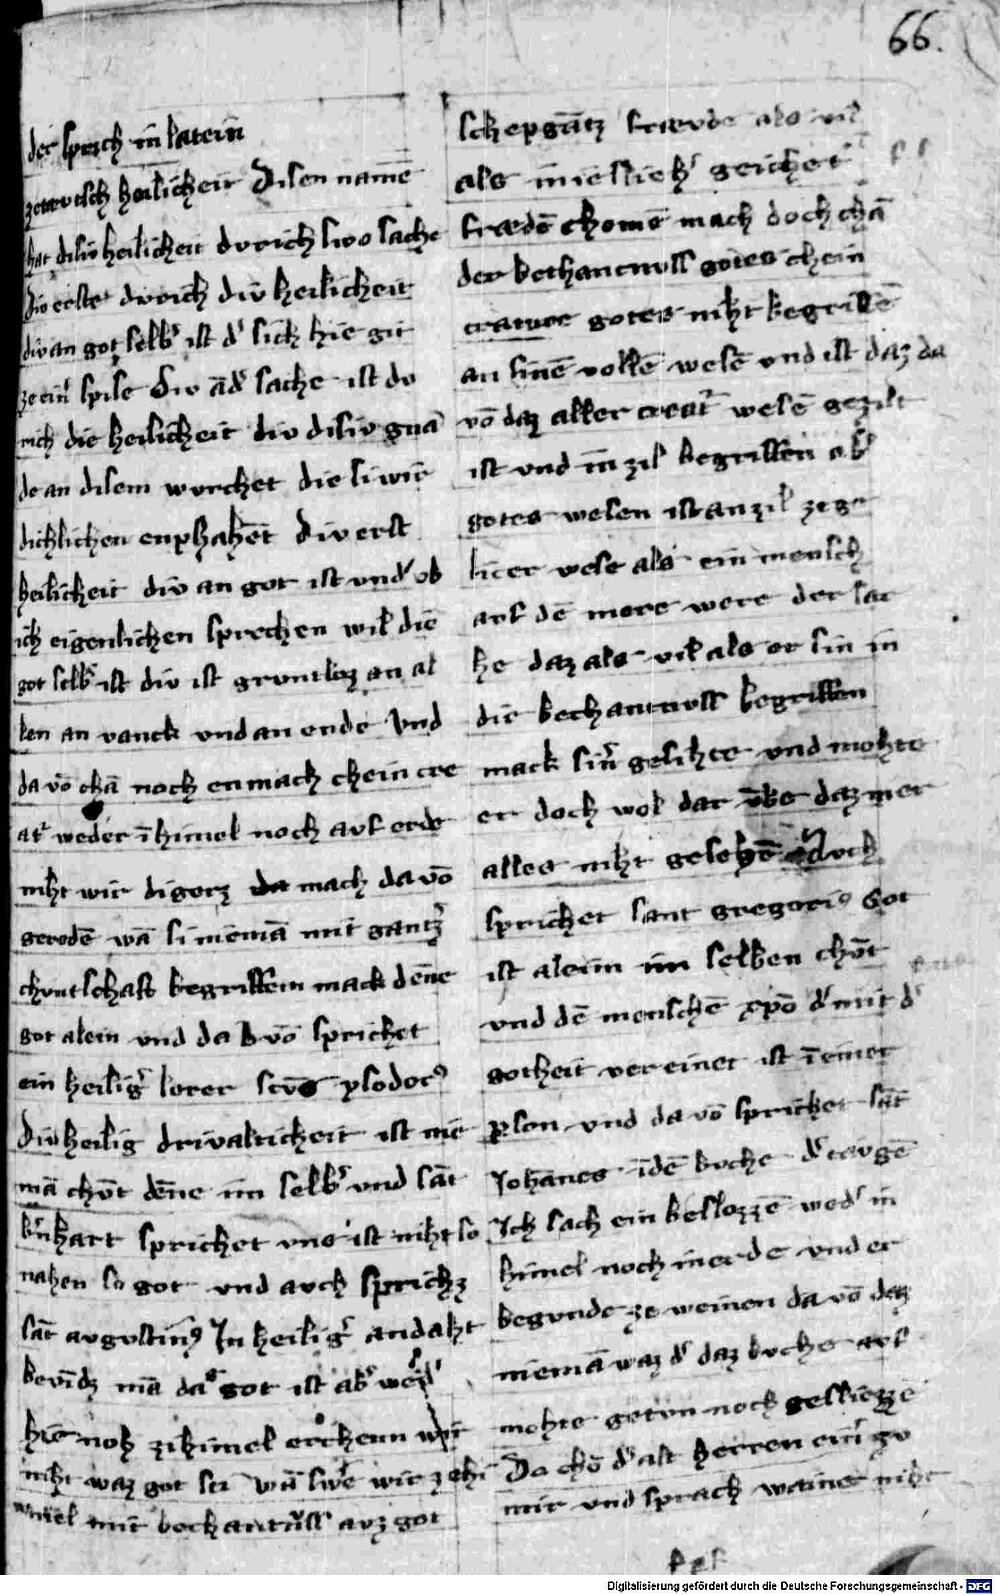 66.
der sprech in latein
zetevtsch heilicheit Disen namē
hat disiv heilicheit dvrich siwo sache
div erste dvrich div heilicheit
div an got selbˢ ist dˢ sich hie git
ze einˢ spise Div ādˢ sache ist dv
rich die heilicheit div disiv gnā
de an disem wurchet die si wir
dichlichen enphahēt Div erst
heilicheit div an got ist vndˢ ob
ich eigenlichen sprechen wil die
got selbˢ ist div ist gruntloz an al
len an vanck vnd an ende Vnd
da vō chā noch enmach chein cre
atˢ weder ī himel noch avf erde
niht wirdigorz mach da vō
geredē wā si niemā mit gantzˢ
chuntschaft begriffenn mack dēne
got alein vnd da vō sprichet
ein heiligˢ lerer scūs ysodorꝰ
Div heilig drivaltickeit ist nie
mā chvt dēne im selbˢ vnd sāt
bˢnhart sprichet vns ist niht so
nahen so got vnd avch sprichz
sāt avgvstinꝰ In heiligˢ andaht
bevīdz mā daˢ got ist abˢ wedˢ
hie noh zihimel erchenn wir
niht waz got sei wā swe wir zehi
mel mit bechantnˢss avz got
schepgātz frævde als vil
als im geichet
frædē chomē mach doch chā
der bechantnvss gotes chein
creatver gotes niht begriffē
an sinē vollē wesē vnd ist daz da
vō daz aller creatˢ wesē gezilt
ist vnd in zil begriffen abˢ
gotes wesen ist an zil ze ge
licer wese als ein mensch
avf dē mere were der sae
he daz als vil als er sin in
die bechantnvss begriffen
mack sinˢ gesihte vnd mohte
er doch wol dar vbe daz mer
alles niht gesehē Avch
sprichet sant gregoriꝰ Got
ist alein im selben chvt
vnd dē menschē xpō dˢ mit dˢ
gotheit vereinet ist ī einer
pson vnd da vō sprichet sāt
Johānes ī dē bvche dˢ tavgē
Ich sach ein beslozzē wedˢ in
himel noch in erde vnd er
begvnde ze weinen da vō daz
niemā waz dˢ daz bvche avf
mohte getvn noch gesliezze
Do chō dˢ alt herren einˢ zv
mir vnd sprach weine niht
Digitalisierung gefördert durch die Deutsche Forschungsgemeinschaft - DFG